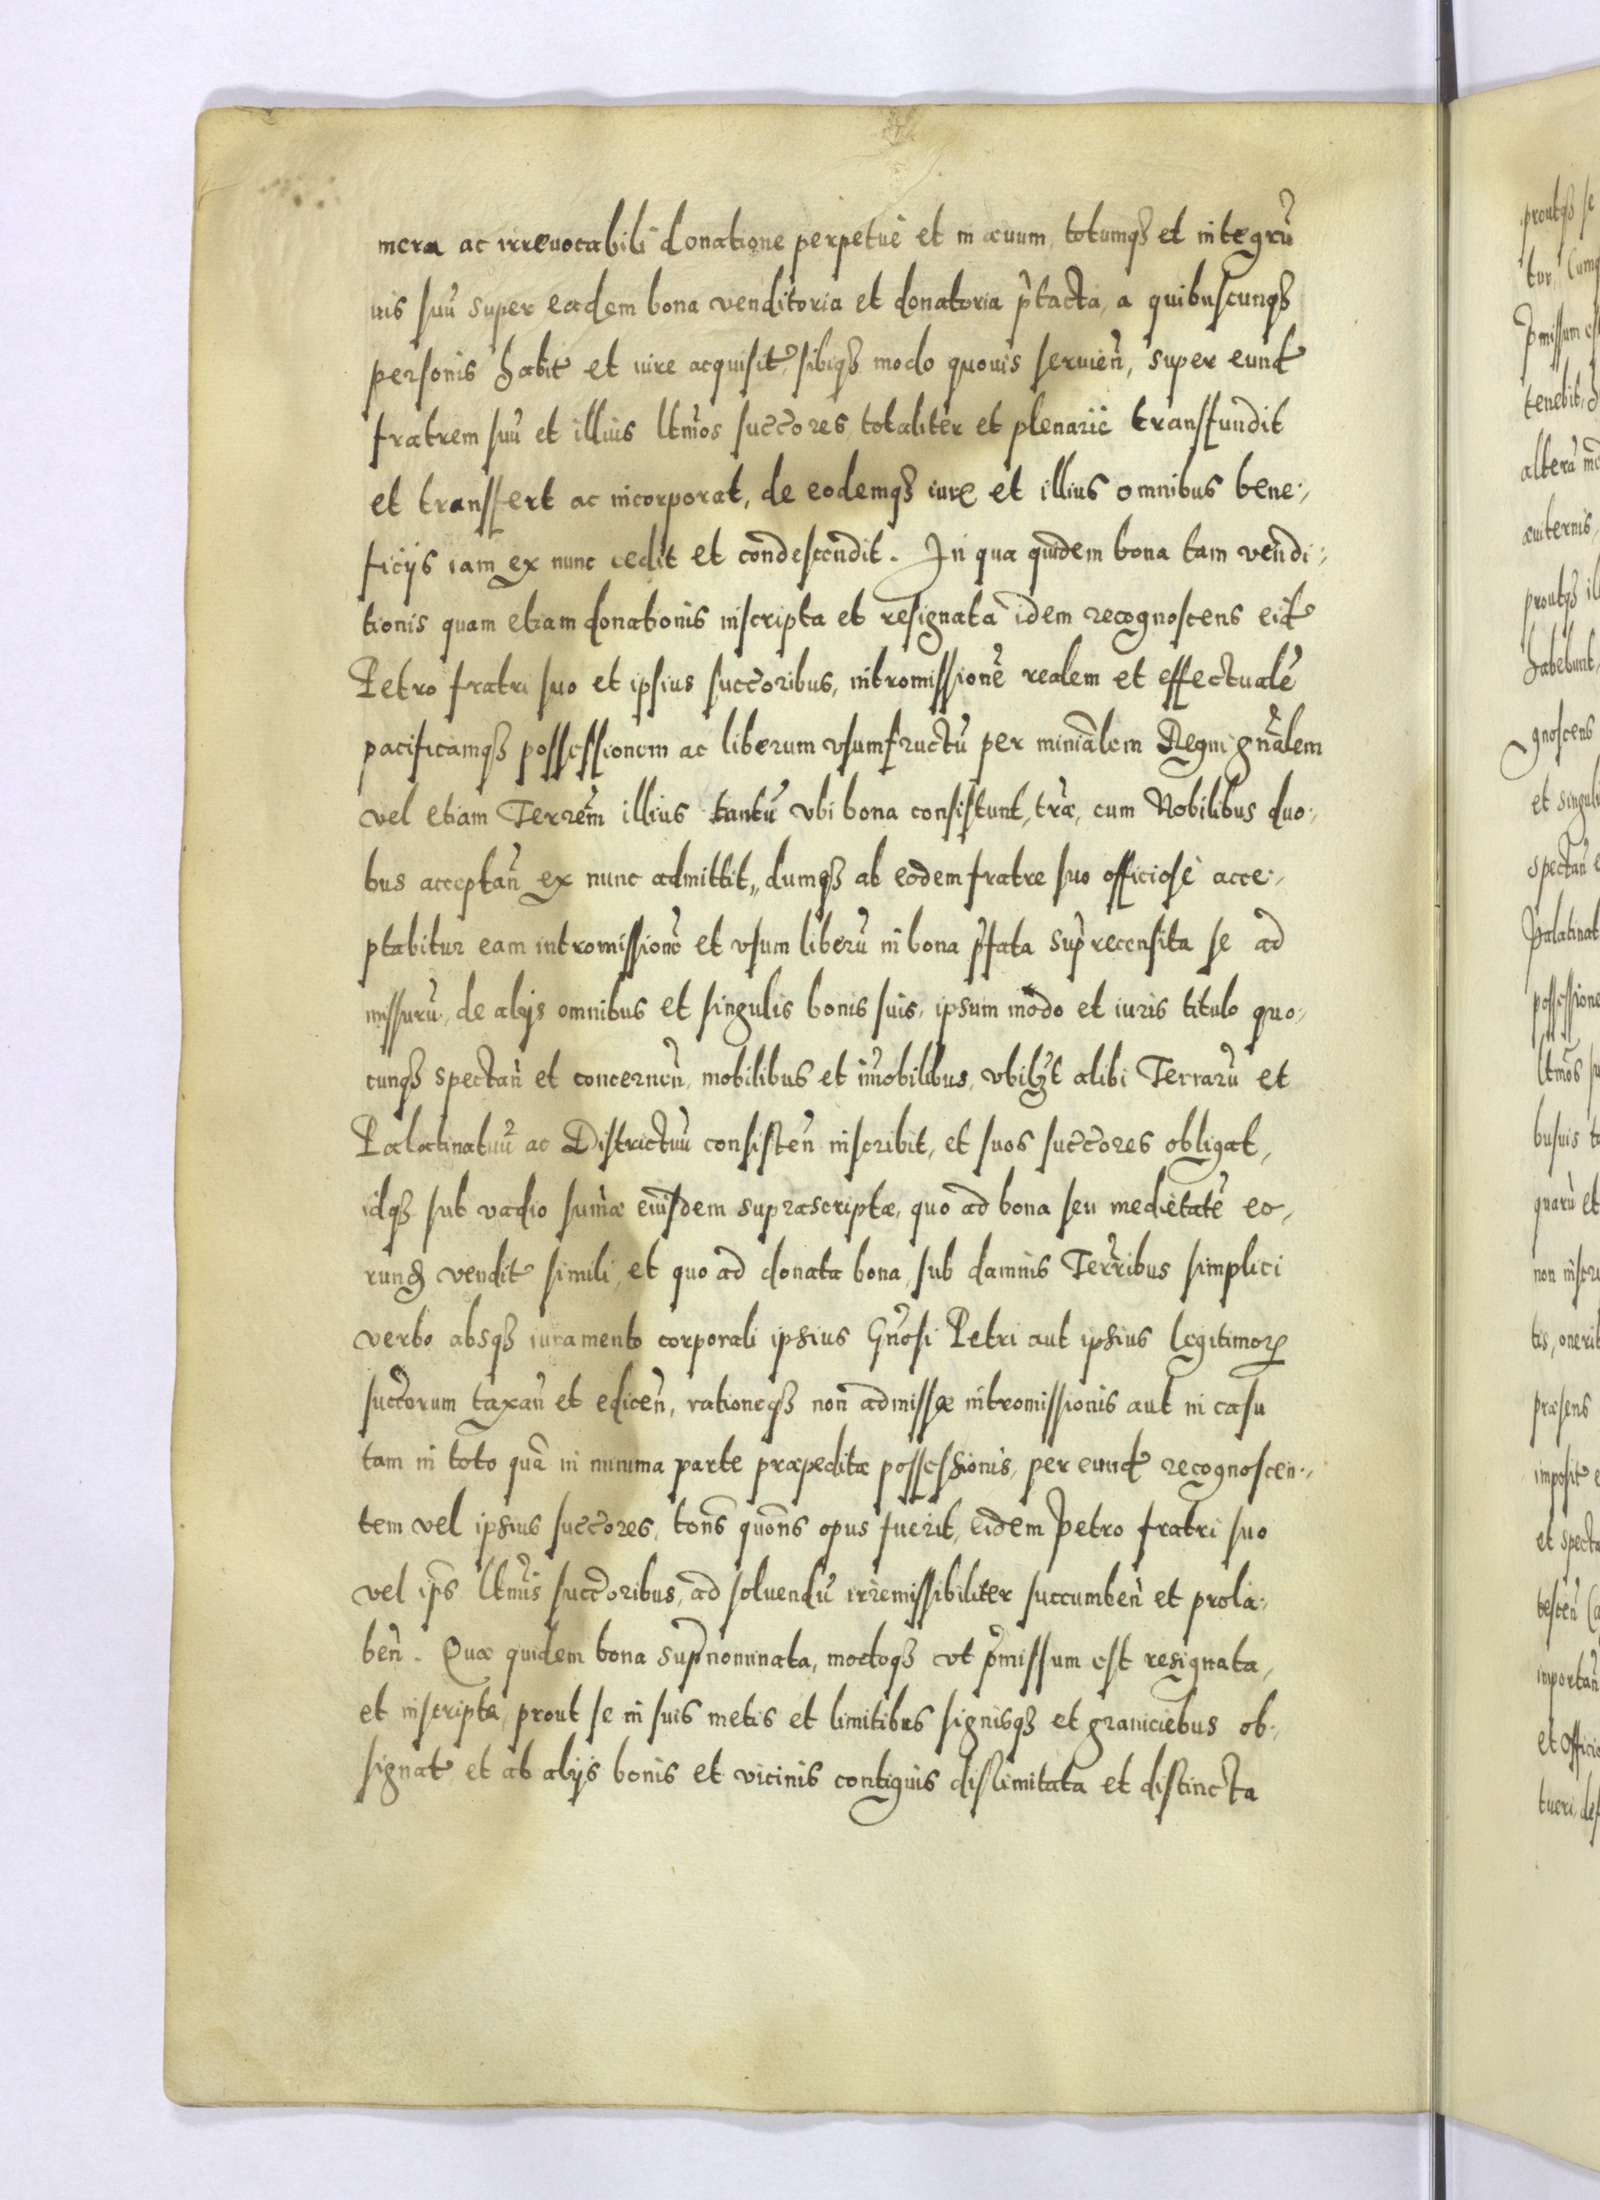 mera ac irreuocabili donatione perpetue et in æuum, totumqȝ et integrũ
ius suũ super eadem bona venditoria et donatoria p̃tacta, a quibuscunqȝ
personis habit̃ et iure acquisit̃, sibiqȝ modo quouis seruieñ, super eund̃
fratrem suũ et illius lt̃mos succ̃ores totaliter et plenarie transfundit
et transfert ac incorporat, de eodemqȝ iure et illius omnibus bene-
ficijs iam ex nunc cedit et condescendit. In qua quidem bona tam vendi-
tionis quam etiam donationis inscripta et resignata idem recognoscens eid̃
Petro fratri suo et ipsius succ̃oribus, intromissionẽ realem et effectualẽ
pacificamqȝ possessionem ac liberum vsumfructũ per miniãlem Regni gñalem
vel etiam Terrẽm illius tantũ vbi bona consistunt, tr̃æ, cum Nobilibus duo-
bus acceptañ ex nunc admittit, dumqȝ ab eodem fratre suo officiose acce-
ptabitur eam intromissionẽ et vsum liberũ in bona p̃fata sup̃recensita se ad
missurũ, de alijs omnibus et singulis bonis suis, ipsum modo et iuris titulo quo-
cunqȝ spectañ et concerneñ, mobilibus et im̃obilibus, vbilȝt alibi Terrarũ et
Palatinatuũ ac Districtuũ consisteñ inscribit, et suos succ̃ores obligat,
idqȝ sub vadio sum̃æ eiusdem suprascriptæ, quo ad bona seu medietatẽ eo-
rund̃ vendit̃ simili, et quo ad donata bona, sub damnis Terr̃ribus simplici
verbo absqȝ iuramento corporali ipsius Gñosi Petri aut ipsius legitimorꝝ
succ̃orum taxañ et ediceñ, rationeqȝ non admissæ intromissionis aut in casu
tam in toto quã in minima parte præpeditæ possessionis, per eund̃ recognoscen-
tem vel ipsius succ̃ores, tot̃ns quot̃ns opus fuerit, eidem Petro fratri suo
vel ip̃s lt̃mis succ̃oribus, ad soluendũ irremissibiliter succumbeñ et prola-
beñ. Quæ quidem bona sup̃nominata, modoqȝ vt p̃missum est resignata,
et inscripta, prout se in suis metis et limitibus signisqȝ et graniciebus ob-
signat̃ et ab alijs bonis et vicinis contiguis dislimitata et distincta